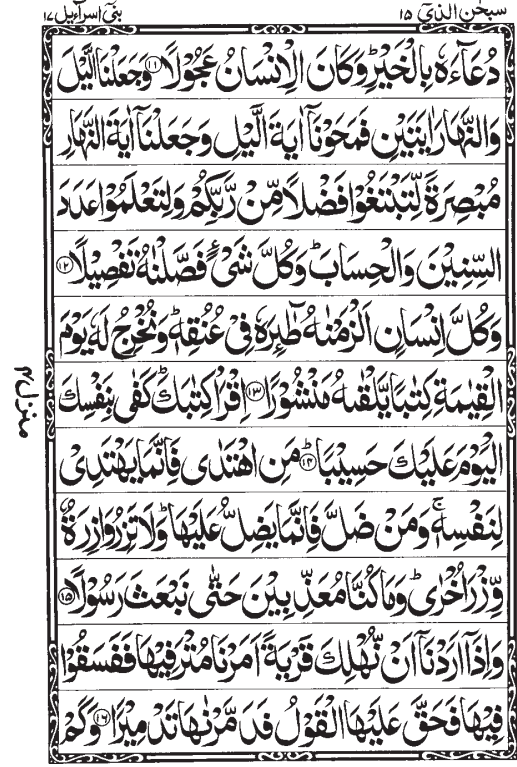 سبحٰن الذیٓ ١٥
بنیٓ اسرآءیل ١٧
دُعَآءَهٗ بِالْخَيْرِ ؕ وَكَانَ الْاِنْسَانُ عَجُوْلًا ﴿١١﴾ وَجَعَلْنَا الَّيْلَ
وَالنَّهَارَ اٰيَتَيْنِ فَمَحَوْنَاۤ اٰيَةَ الَّيْلِ وَجَعَلْنَاۤ اٰيَةَ النَّهَارِ
مُبْصِرَةً لِّتَبْتَغُوْا فَضْلًا مِّنْ رَّبِّكُمْ وَلِتَعْلَمُوْا عَدَدَ
السِّنِيْنَ وَالْحِسَابَ ؕ وَكُلَّ شَیْءٍ فَصَّلْنٰهُ تَفْصِيْلًا ﴿١٢﴾
وَكُلَّ اِنْسَانٍ اَلْزَمْنٰهُ طٰٓئِرَهٗ فِیْ عُنُقِهٖ ؕ وَنُخْرِجُ لَهٗ يَوْمَ
الْقِيٰمَةِ كِتٰبًا يَّلْقٰىهُ مَنْشُوْرًا ﴿١٣﴾ اِقْرَاْ كِتٰبَكَ ؕ كَفٰی بِنَفْسِكَ
الْيَوْمَ عَلَيْكَ حَسِيْبًا ؕ ﴿١٤﴾ مَنِ اهْتَدٰی فَاِنَّمَا يَهْتَدِیْ
لِنَفْسِهٖ ۚ وَمَنْ ضَلَّ فَاِنَّمَا يَضِلُّ عَلَيْهَا ؕ وَلَا تَزِرُ وَازِرَةٌ
وِّزْرَ اُخْرٰی ؕ وَمَا كُنَّا مُعَذِّبِيْنَ حَتّٰی نَبْعَثَ رَسُوْلًا ﴿١٥﴾
وَاِذَاۤ اَرَدْنَاۤ اَنْ نُّهْلِكَ قَرْيَةً اَمَرْنَا مُتْرَفِيْهَا فَفَسَقُوْا
فِيْهَا فَحَقَّ عَلَيْهَا الْقَوْلُ فَدَمَّرْنٰهَا تَدْمِيْرًا ﴿١٦﴾ وَكَمْ
منزل ٤